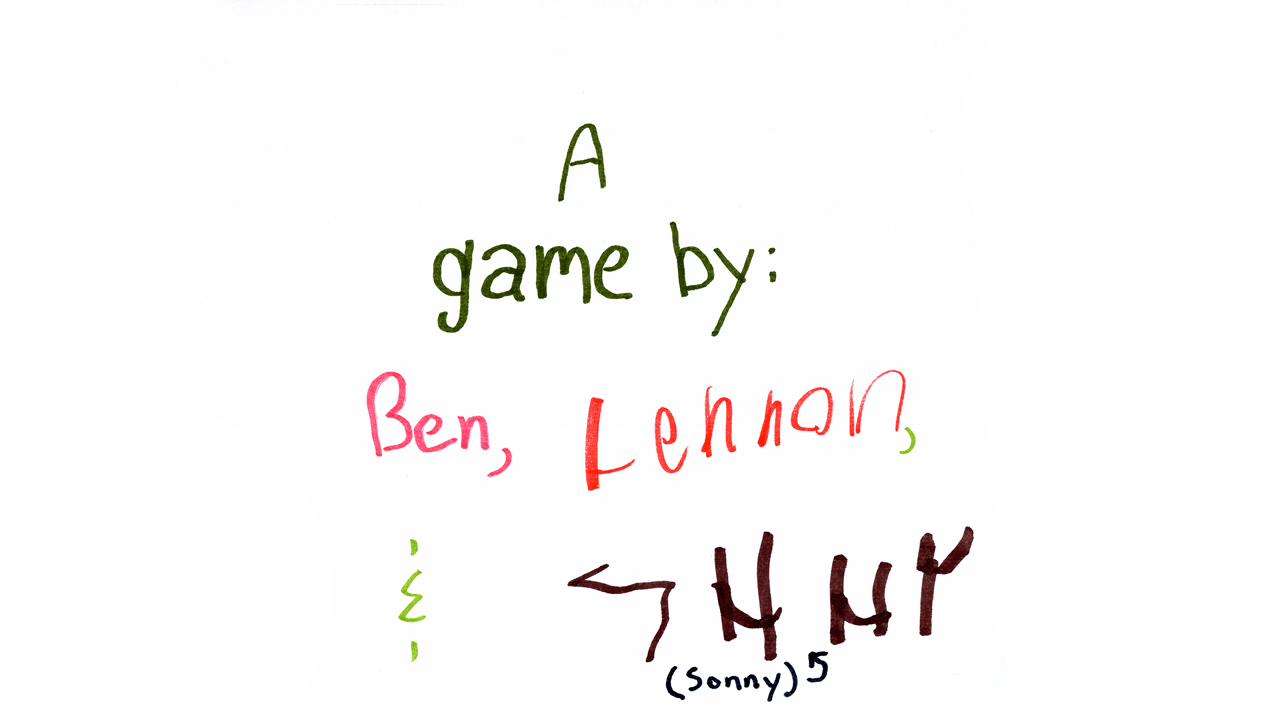 A
game by:
Ben, Lennon,
&
(Sonny) 5